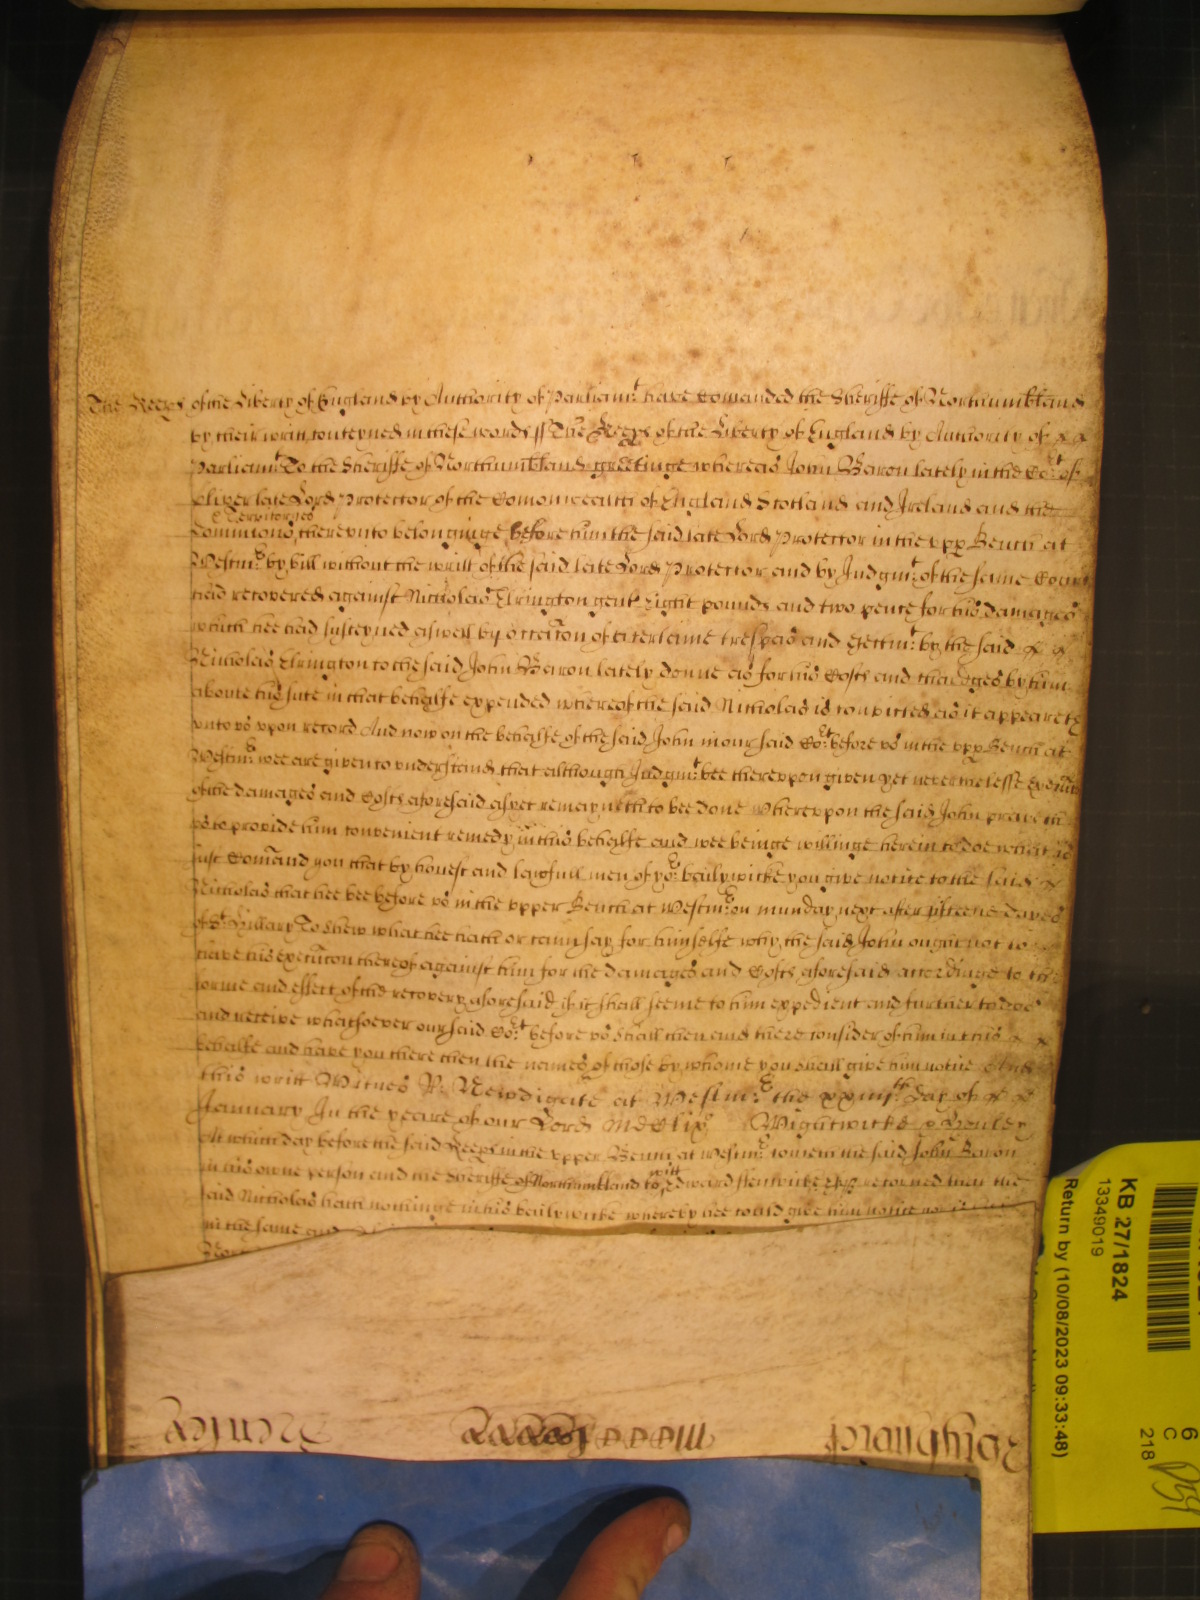 The Keeps of the Liberty of England by Authority of Parliamt have Comanded the Sheriffe of Northumbland
by their writt conteyned in these words ss The Keeps of the Liberty of England by Authority of
Parliamt To the Sheriffe of Northumbland greetinge whereas John Baron lately in the Cort of
Oliver late Lord Protector of the Comonwealth of England Scotland and Ireland and the
& Territories
Dominions thereunto belonginge before him the said late Lord Protector in the upp Bench at
Westmr by bill without the writt of the said late Lord Protector and by Judgmt of the same Court
had recovered against Nicholas Errington gent Eight pounds and two pence for his damages
which hee had susteyned aswell by occacon of a certeine trespas and Ejectmt by the said
Nicholas Errington to the said John Baron lately donne as for his Costs and chardges by him
aboute his sute in that behalfe expended whereof the said Nicholas is convicted as it appeareth
unto us upon record And now on the behalfe of the said John in our said Cort before us in the upp Bench at
Westmr wee are given to understand that although Judgmt bee thereupon given yet neverthelesse Execucon
of the damages and Costs aforesaid as yet remayneth to bee done Whereupon the said John prayeth
us to provide him convenient remedy in this behalfe and wee beinge willinge herein to doe what is
just Comand you that by honest and lawfull men of yor bailywicke you give notice to the said
Nicholas that hee bee before us in the upper Bench at Westmr on munday next after fifteene dayes
of St Hillary To shew what hee hath or can say for himselfe why the said John ought not to
have his execucon thereof against him for the damages and Costs aforesaid accordinge to the
forme and effect of the recovery aforesaid if it shall seeme to him expedient and further to doe
and receive whatsoever our said Cort before us shall then and there consider of him in this
behalfe and have you there then the names of those by whome you shall give him notice And
this writt Witnes R: Newdigate at Westmr the xxiiith day of
January In the yeare of our Lord MDClix Wightwicke & Henley
At which day before the said Keeps in the upper Bench at Westmr cometh the said John Baron
in his owne person and the Sheriffe of Northumbland to witt Edward Fenwicke Esqr retorned that the
said Nicholas hath nothinge in his bailywicke whereby hee could give him notice
in the same and
Henley
KB 27/1824
13349019
Return by (10/08/2023 09:33:48)
6
C
218